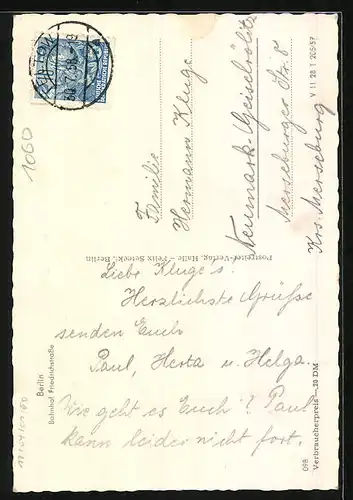 Familie
Hermann Kluge
Neumark-Geiselröhlitz
Merseburger Str. 8
Krs. Merseburg
Liebe Kluge's!
Herzlichste Grüße
senden Euch
Paul, Herta u. Helga.
Wie geht es Euch? Paul
kann leider nicht fort.
Berlin
Bahnhof Friedrichstraße
Postreiter-Verlag, Halle – Felix Setecki, Berlin
V 11 28 T 205/57
098
Verbraucherpreis —,20 DM
1060